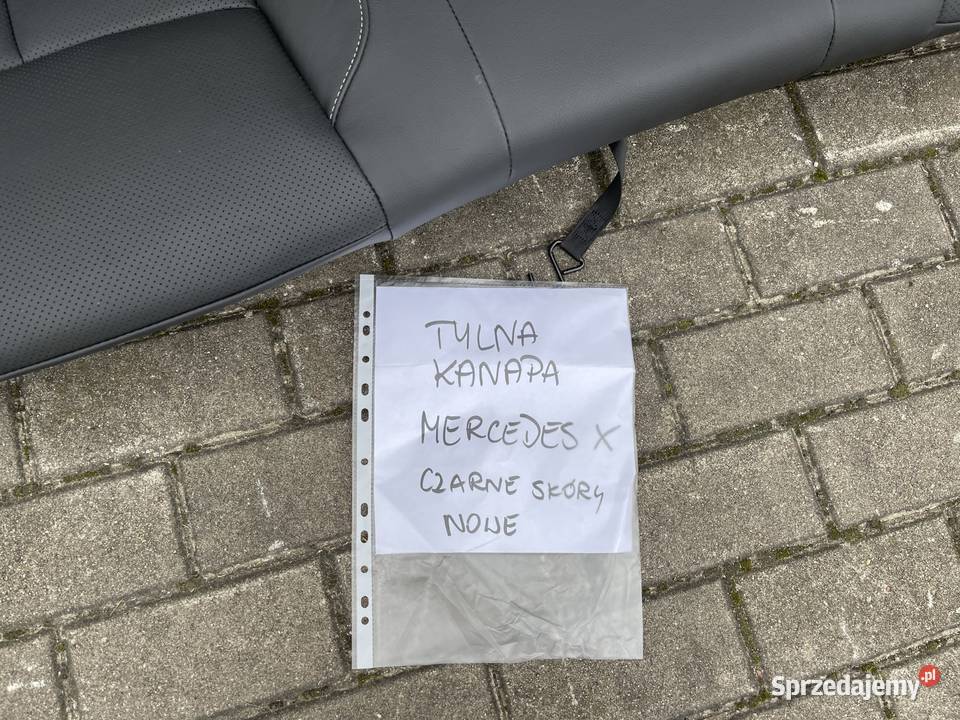 TYLNA
KANAPA
MERCEDES X
CZARNE SKÓRY
NOWE
Sprzedajemy.pl